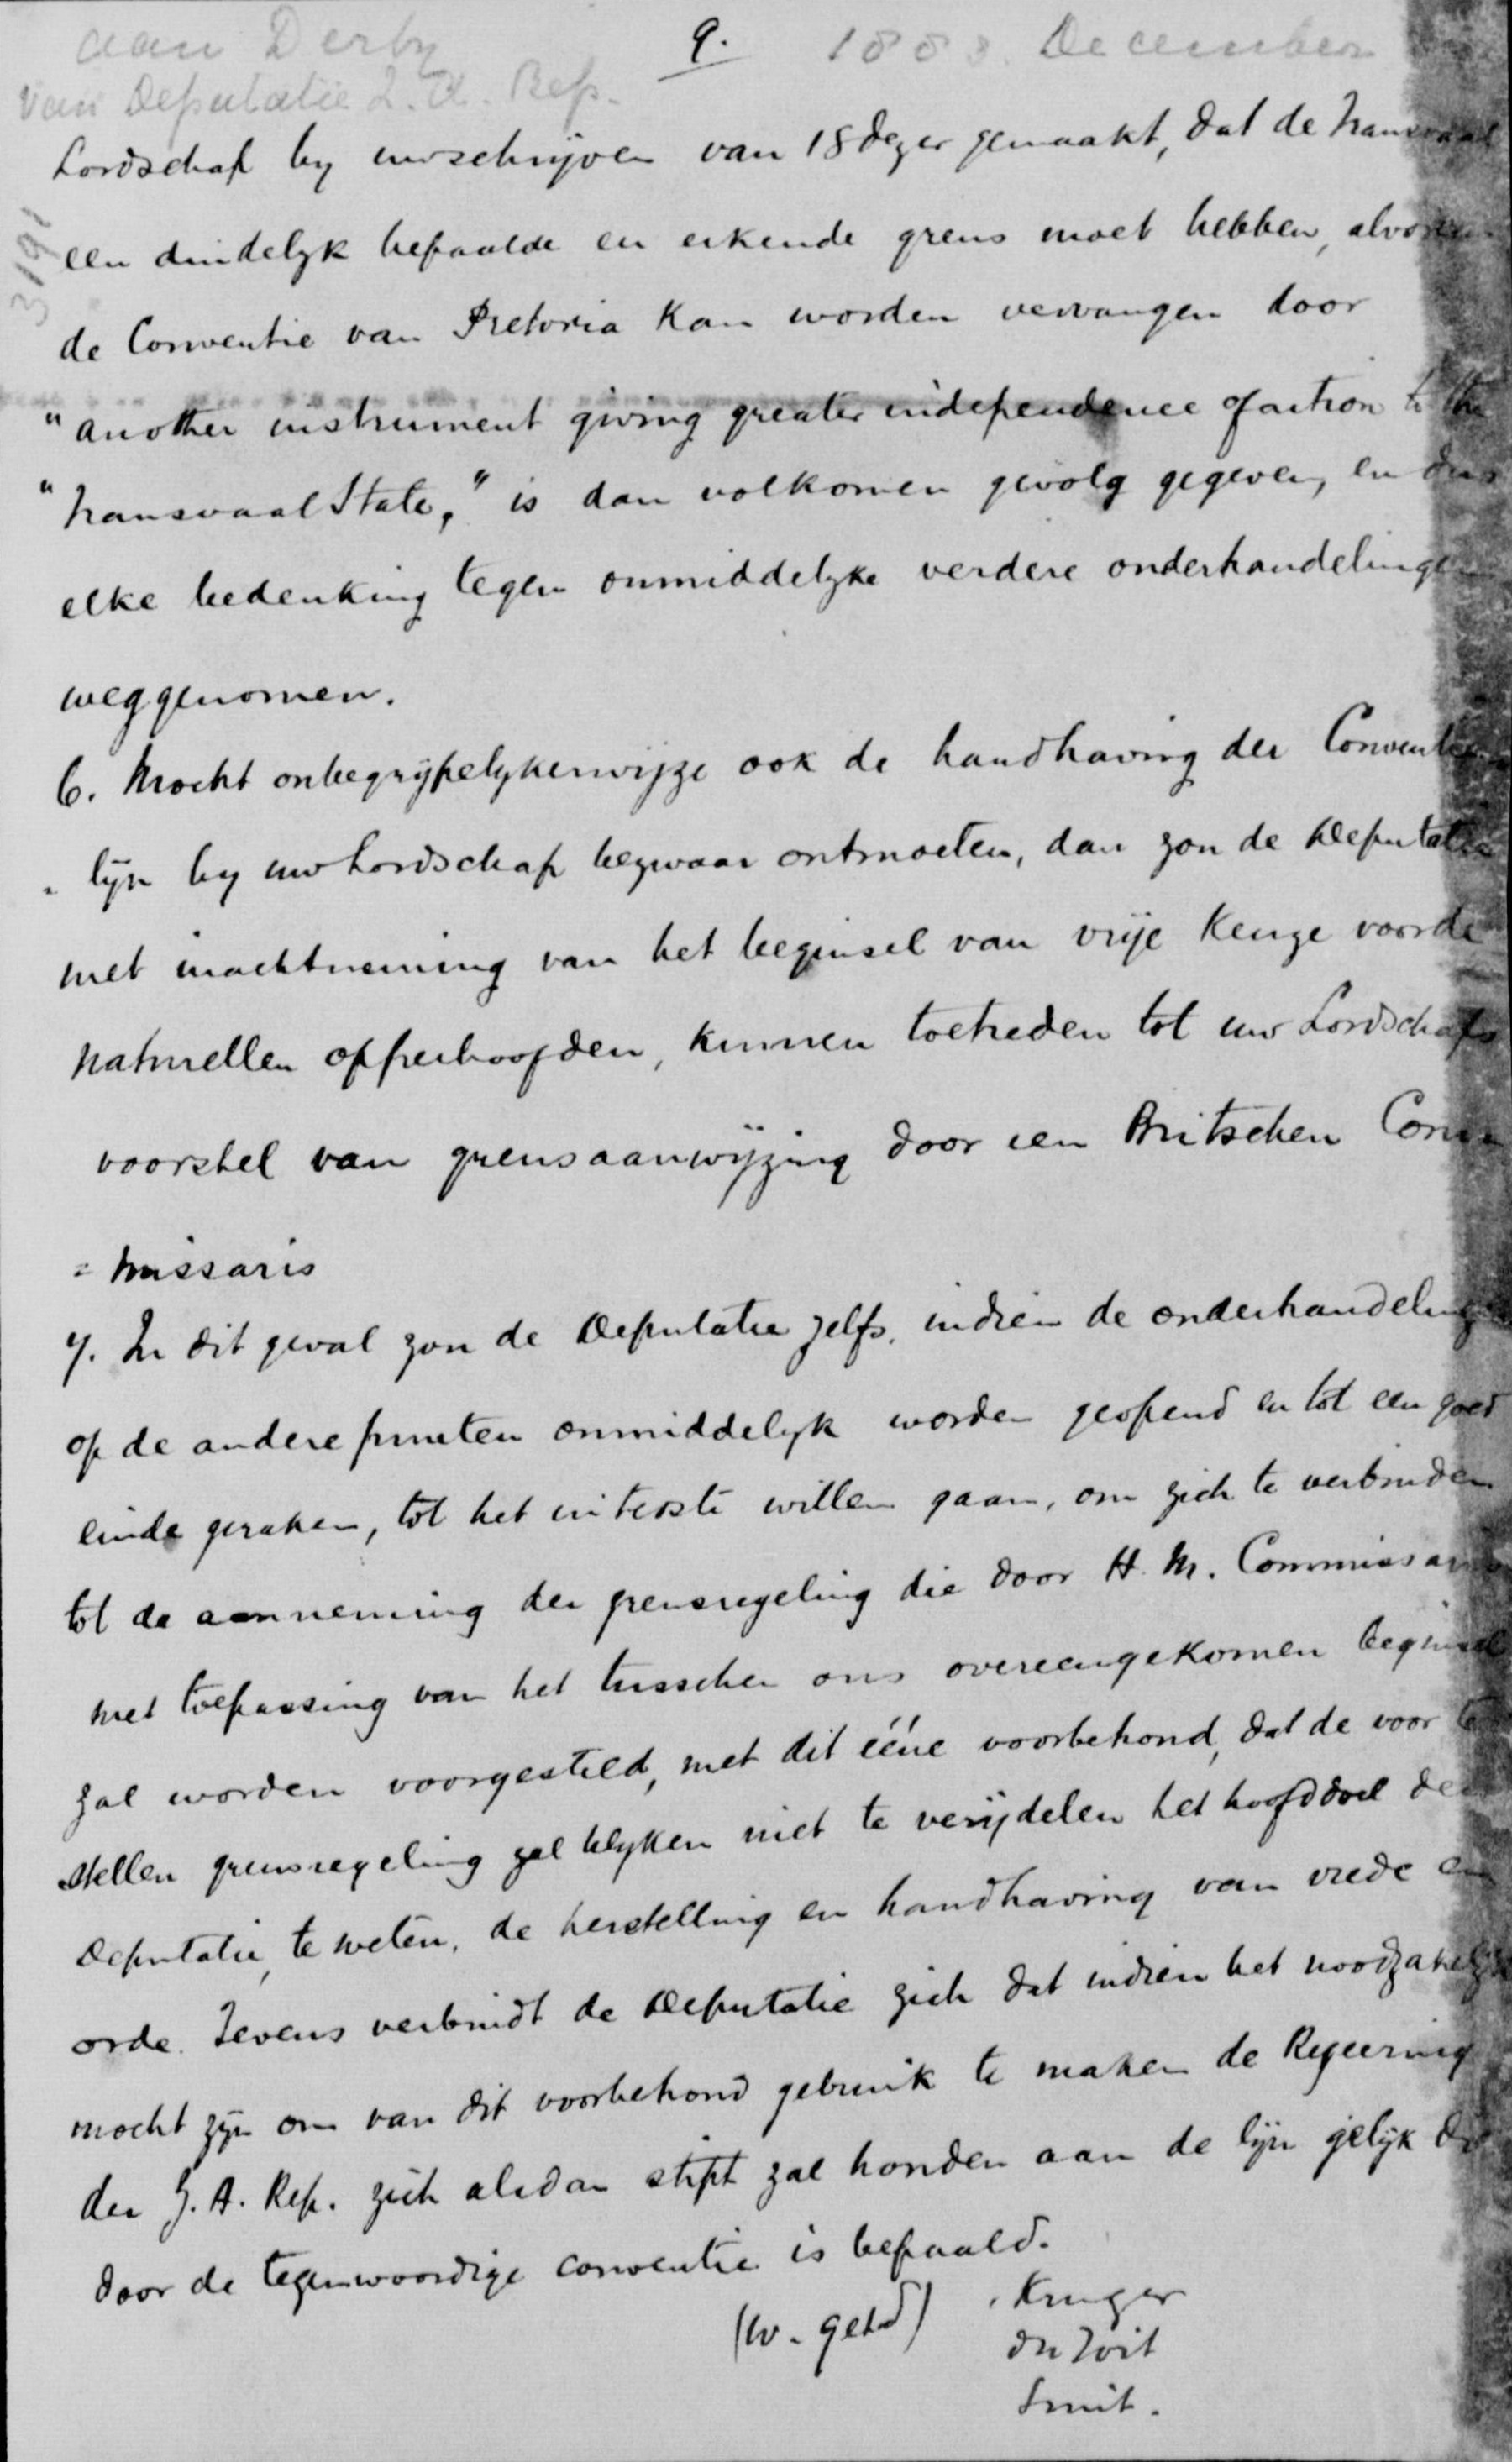 aan Derby 9. 1883. December
van Deputatie Z. A. Rep.
3191
Lordschap by uw schrijven van 18 dezer gemaakt, dat de Transvaal
een duidelyk bepaalde en erkende grens moet hebben, alvorens
de Conventie van Pretoria kan worden vervangen door
"another instrument giving greater independence of action to the
"Transvaal State," is dan volkomen gevolg gegeven, en dus
elke bedenking tegen onmiddelyke verdere onderhandelingen
weggenomen.
6. Mocht onbegrypelykerwijze ook de handhaving der Conventie
= lijn by uw Lordschap bezwaar ontmoeten, dan zou de Deputatie
met inachtneming van het beginsel van vrije Keuze voor de
naturellen opperhoofden, kunnen toetreden tot uw Lordschaps
voorstel van grensaanwijzing door een Britschen Com
= missaris
7. In dit geval zou de Deputatie zelfs, indien de onderhandelingen
op de andere punten onmiddelyk worden geopend en tot een goed
einde geraken, tot het uiterste willen gaan, om zich te verbinden
tot de aanneming der grensregeling die door H. M. Commissaris
met toepassing van het tusschen ons overeengekomen beginsel
zal worden voorgesteld, met dit ééne voorbehoud, dat de voor te
stellen grensregeling zal blyken niet te verijdelen het hoofddoel der
Deputatie, te weten, de herstelling en handhaving van vrede en
orde. Tevens verbindt de Deputatie zich dat indien het noodzakelyk
mocht zyn om van dit voorbehoud gebruik te maken de Regeering
der Z. A. Rep. zich alsdan stipt zal houden aan de lijn gelijk die
door de tegenwoordige conventie is bepaald.
(w. getd) Kruger
du Toit
Smit.